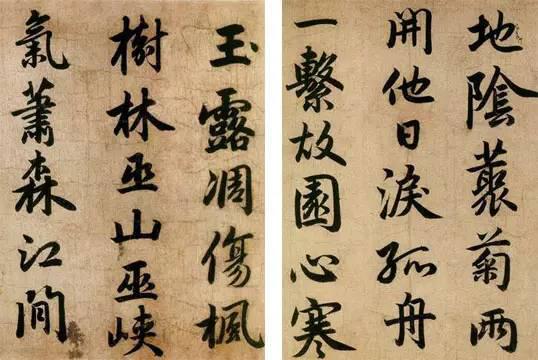 玉露凋傷楓
樹林巫山巫峽
氣蕭森江間
地陰藂菊兩
開他日淚孤舟
一繫故園心寒